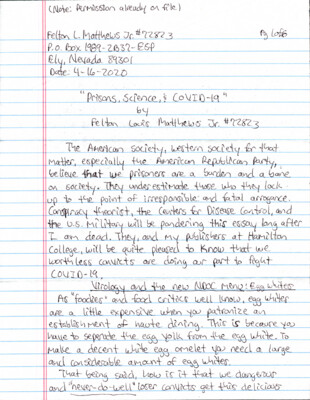 (Note: Permission already on file)
Felton L. Matthews Jr. #72823
Pg 1 of 5
P.O. Box 1989-2B37-ESP
Ely, Nevada 89301
Date: 4-16-2020
"Prisons, Science, & COVID-19"
by
Felton Louis Matthews Jr. #72823
The American society, western society for that
matter, especially the American Republican Party,
believe that we prisoners are a burden and a bane
on society. They underestimate those who they lock
up to the point of irresponsible and fatal arrogance.
Conspiracy theorist, the Centers for Disease Control, and
the U.S. Military will be pondering this essay long after
I am dead. They, and my publishers at Hamilton
College, will be quite pleased to know that we
worthless convicts are doing our part to fight
COVID-19.
Virology and the new NDOC Menu: Egg Whites
As "foodies" and food critics well know, egg whites
are a little expensive when you patronize an
establishment of haute dining. This is because you
have to seperate the egg yolk from the egg white. To
make a decent white egg omelet you need a large
and considerable amount of egg whites.
That being said, How is it that we dangerous
and "never-do-well" loser convicts get this delicious